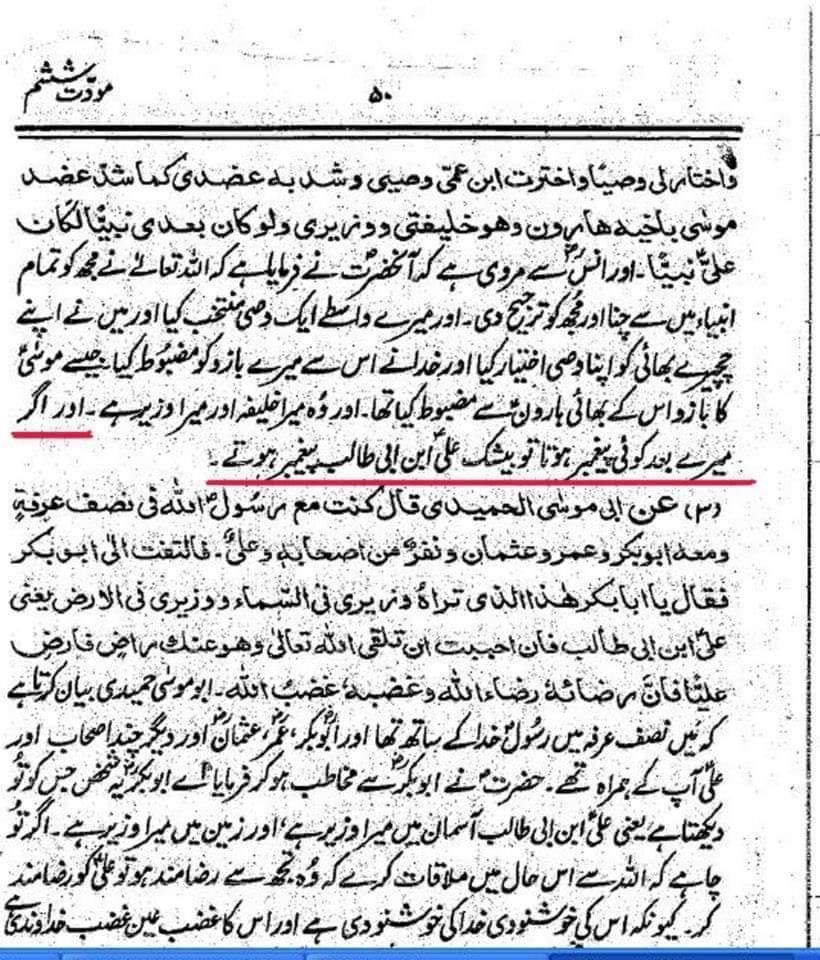 مودّت ششم
۵۰
واختار لی وصیًا واخترت ابن عمّی وصیی و شد به عضدی کما شدّ عضد
موسٰی باخیه هارون وهو خلیفتی ووزیری ولو کان بعدی نبیًّا لکان
علیٌّ نبیًّا۔ اور انسؓ سے مروی ہے کہ آنحضرتؐ نے فرمایا ہے کہ اللہ تعالےٰ نے مجھ کو تمام
انبیاء میں سے چنا اور مجھ کو ترجیح دی۔ اور میرے واسطے ایک وصی منتخب کیا اور میں نے اپنے
چچیرے بھائی کو اپنا وصی اختیار کیا اور خدا نے اس سے میرے بازو کو مضبوط کیا۔ جیسے موسٰیؑ
کا بازو اس کے بھائی ہارونؑ سے مضبوط کیا تھا۔ اور وُہ میرا خلیفہ اور میرا وزیر ہے۔ اور اگر
میرے بعد کوئی پیغمبر ہوتا تو بیشک علیؑ ابن ابی طالب پیغمبر ہوتے۔
(۳) عن ابی موسٰی الحمیدی قال کنت مع رسُول اللہؐ فی نصف عرفةٍ
ومعه ابوبکر وعمر وعثمان ونفرٌ من اصحابه وعلیٌّ۔ فالتفت الٰی ابوبکر
فقال یا ابابکر هٰذا الذی تراهُ وزیری فی السّماء ووزیری فی الارض یعنی
علیؑ ابن ابی طالب فان احببت ان تلقی اللہ تعالٰی وهو عنك راضٍ فارض
علیًّا فانّ رضائهٗ رضاء اللہ وغضبهٗ غضبُ اللہ۔ ابوموسٰی حمیدی بیان کرتا ہے
کہ مَیں نصف عرفہ میں رسُولؐ خدا کے ساتھ تھا اور ابُوبکرؓ، عمرؓ، عثمانؓ اور دیگر چند اصحاب اور
علیؑ آپ کے ہمراہ تھے۔ حضرتؐ نے ابوبکرؓ سے مخاطب ہو کر فرمایا اے ابوبکرؓ یہ شخص جس کو تُو
دیکھتا ہے یعنی علیؑ ابن ابی طالب آسمان میں میرا وزیر ہے، اور زمین میں میرا وزیر ہے۔ اگر تُو
چاہے کہ اللہ سے اس حال میں ملاقات کرے کہ وُہ تجھ سے رضامند ہو تو علیؑ کو رضامند
کر۔ کیونکہ اس کی خوشنودی خدا کی خوشنودی ہے اور اس کا غضب عین غضب خداوندی ہے